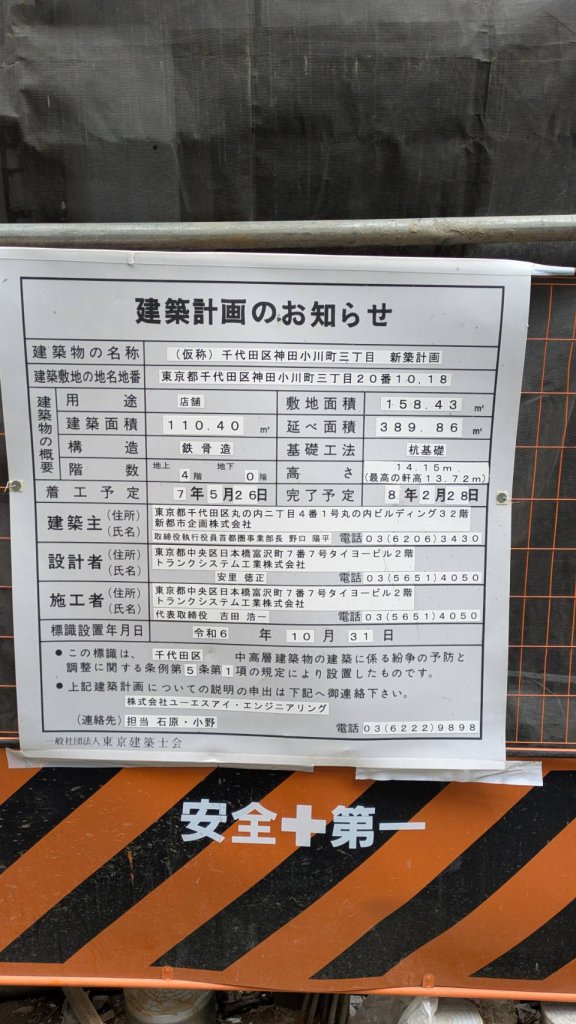 建築計画のお知らせ
建築物の名称 (仮称)千代田区神田小川町三丁目 新築計画
建築敷地の地名地番 東京都千代田区神田小川町三丁目20番10,18
建築物の概要
用途 店舗 敷地面積 158.43 ㎡
建築面積 110.40 ㎡ 延べ面積 389.86 ㎡
構造 鉄骨造 基礎工法 杭基礎
階数 地上 4階 地下 0階 高さ 14.15m (最高の軒高13.72m)
着工予定 7年5月26日 完了予定 8年2月28日
建築主 (住所) 東京都千代田区丸の内二丁目4番1号丸の内ビルディング32階
新都市企画株式会社
(氏名) 取締役執行役員首都圏事業部長 野口 陽平 電話 03(6206)3430
設計者 (住所) 東京都中央区日本橋富沢町7番7号タイヨービル2階
トランクシステム工業株式会社
(氏名) 安里 徳正 電話 03(5651)4050
施工者 (住所) 東京都中央区日本橋富沢町7番7号タイヨービル2階
トランクシステム工業株式会社
(氏名) 代表取締役 吉田 浩一 電話 03(5651)4050
標識設置年月日 令和6年 10月 31日
●この標識は、千代田区 中高層建築物の建築に係る紛争の予防と
調整に関する条例第5条第1項の規定により設置したものです。
●上記建築計画についての説明の申出は下記へ御連絡下さい。
株式会社ユーエスアイ・エンジニアリング
(連絡先) 担当 石原・小野 電話 03(6222)9898
一般社団法人 東京建築士会
安全✚第一